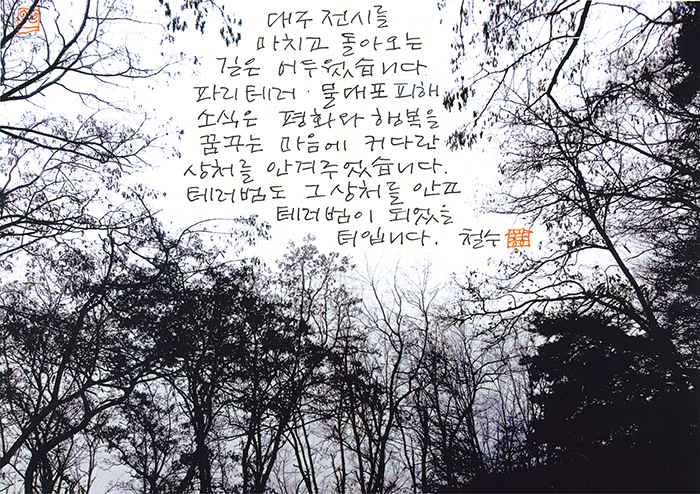 대구 전시를
마치고 돌아오는
길은 어두웠습니다
파리테러 · 물대포 피해
소식은 평화와 행복을
꿈꾸는 마음에 커다란
상처를 안겨주었습니다.
테러범도 그 상처를 안고
테러범이 되었을
터입니다. 철수